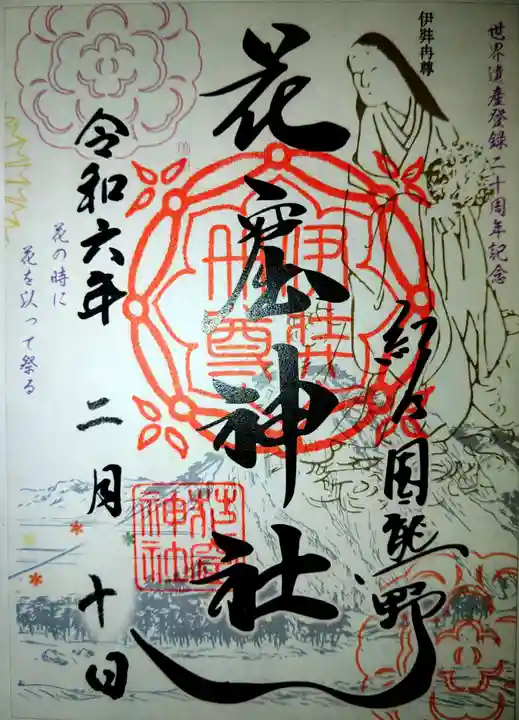 世界遺産登録二十周年記念
伊弉冉尊
紀乃国熊野
花窟神社
伊弉
冉尊
花窟
神社
令和六年 二月 十日
花の時に
花を以って祭る